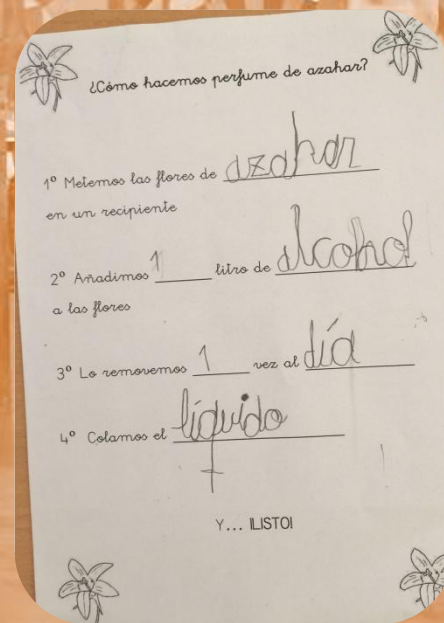 ¿Cómo hacemos perfume de azahar?
1º Metemos las flores de azahar
en un recipiente
2º Añadimos 1 litro de alcohol
a las flores
3º Lo removemos 1 vez al día
4º Colamos el líquido
Y... ¡LISTO!